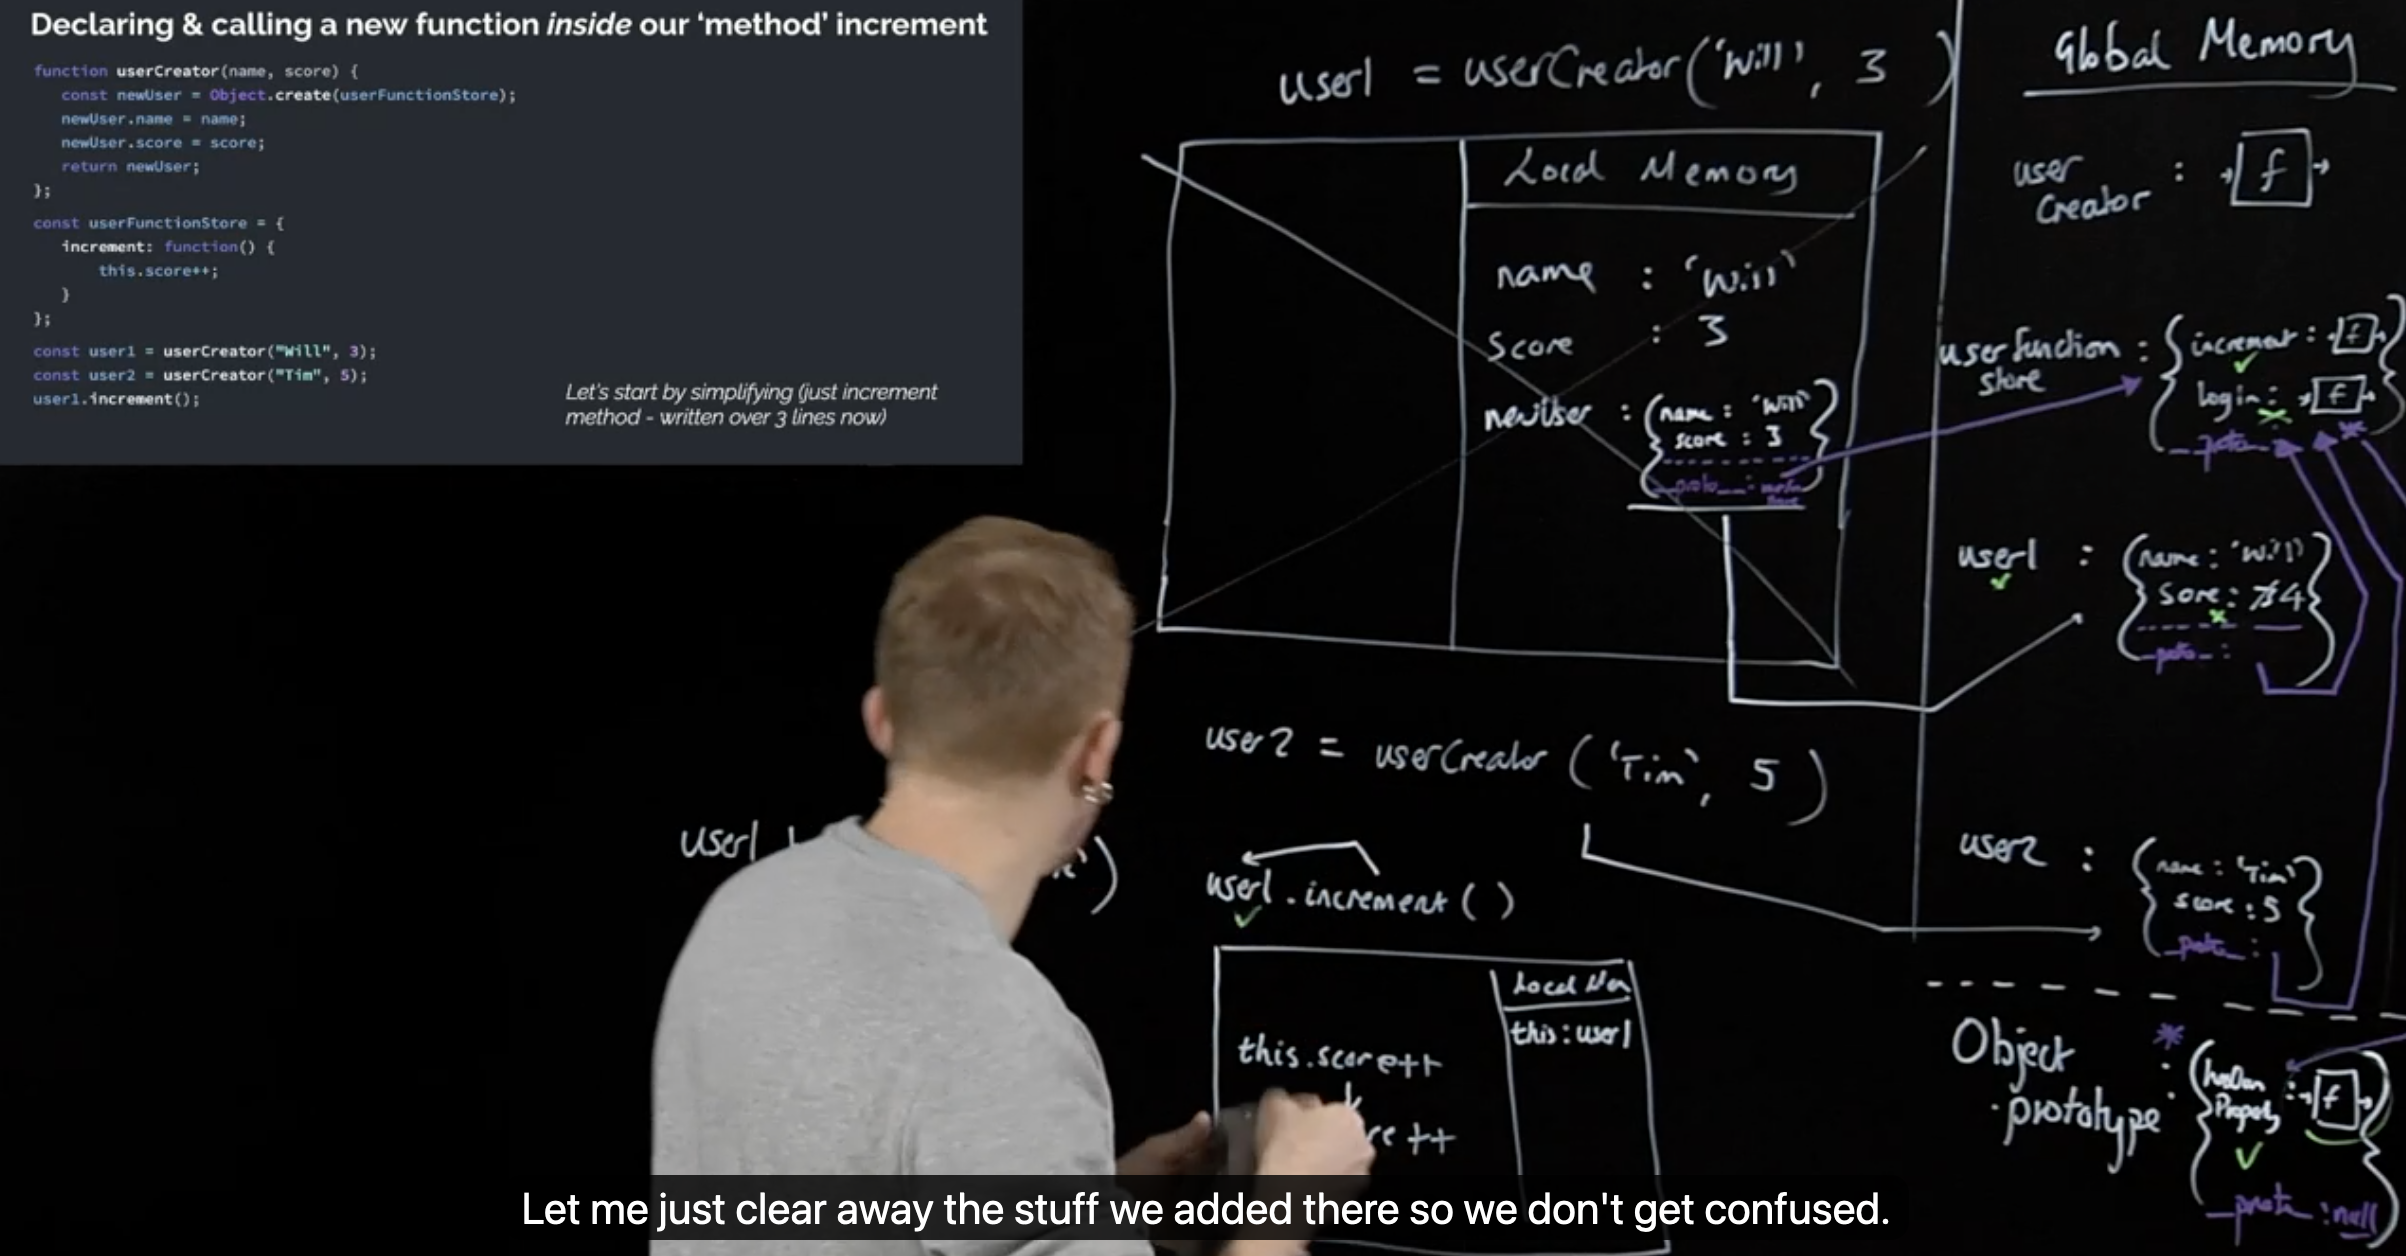 Declaring & calling a new function inside our ‘method’ increment
function userCreator(name, score) {
const newUser = Object.create(userFunctionStore);
newUser.name = name;
newUser.score = score;
return newUser;
};
const userFunctionStore = {
increment: function() {
this.score++;
}
};
const user1 = userCreator("Will", 3);
const user2 = userCreator("Tim", 5);
user1.increment();
Let's start by simplifying (just increment
method - written over 3 lines now)
user1 = userCreator('Will', 3 )
Local Memory
name : 'Will'
score : 3
newUser : {name : 'Will'
score : 3
__proto__ :
}
user2 = userCreator ('Tim', 5 )
user1
user1 . increment ( )
Local Mem
this : user1
this.score++
++
Global Memory
user
Creator : f
user function
store : { increment : f
login : f
__proto__
}
user1 : {name : 'Will'
Score : 4
__proto__ :
}
user2 : {name : 'Tim'
score : 5
__proto__ :
}
Object
.prototype * : {hasOwn
Property : f
__proto__ : null
}
Let me just clear away the stuff we added there so we don't get confused.